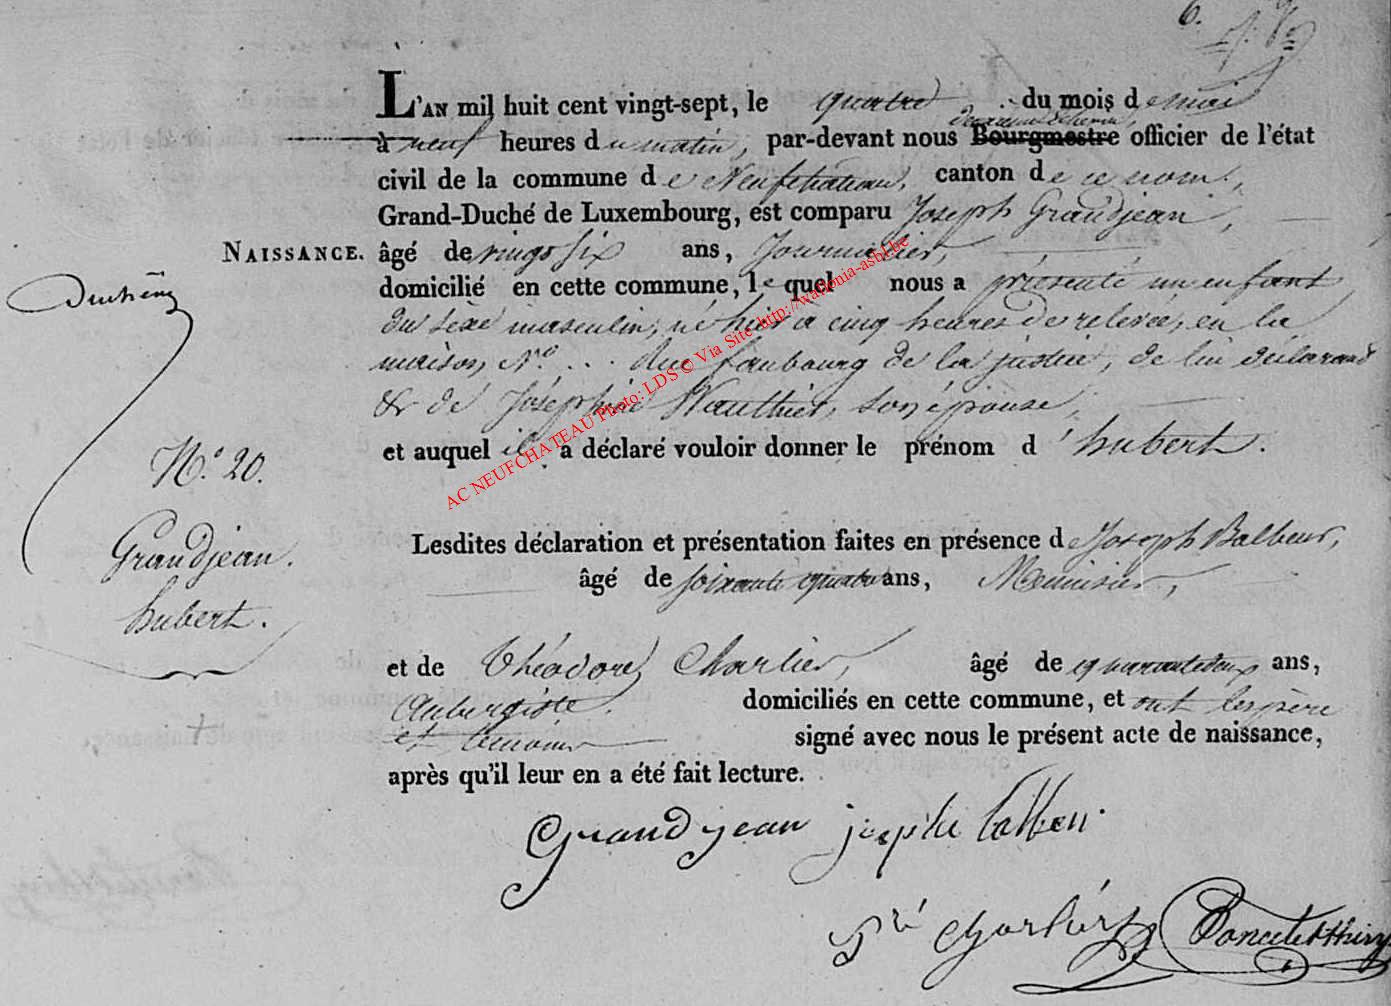 6.
L'AN mil huit cent vingt-sept, le quatre du mois de mai
à neuf heures du matin, par-devant nous Bourgmestre officier de l'état
civil de la commune de Neufchateau, canton de ce nom,
Grand-Duché de Luxembourg, est comparu Joseph Grandjean,
NAISSANCE. âgé de vingt six ans, Journalier,
domicilié en cette commune, lequel nous a présenté un enfant
du sexe masculin, né hier à cinq heures de relevée, en la
maison, No. .. Rue faubourg de la justice, de lui déclarant
& de Joséphine Wauthier, son épouse,
et auquel il a déclaré vouloir donner le prénom d'hubert.
No. 20.
Grandjean.
hubert.
Lesdites déclaration et présentation faites en présence de Joseph Balbeur,
âgé de soixante quatre ans, Menuisier,
et de Théodore Charlier, âgé de quarante deux ans,
Aubergiste. domiciliés en cette commune, et ont les père
et témoins signé avec nous le présent acte de naissance,
après qu'il leur en a été fait lecture.
Grandjean joseph
charlier Poncelet
AC NEUFCHATEAU Photo: LDS © Via Site http://wallonia-asbl.be